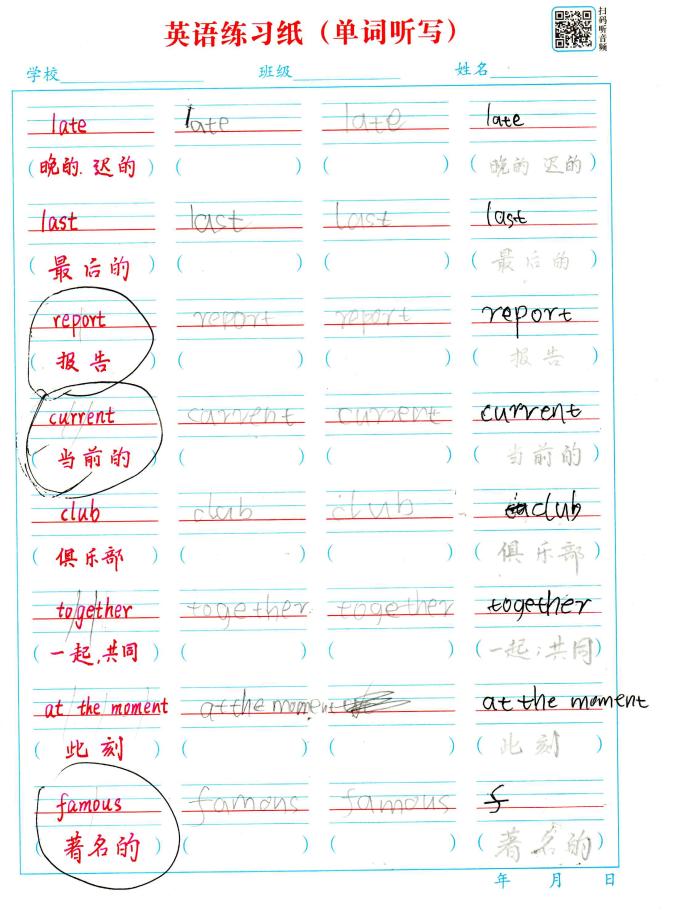 英语练习纸（单词听写）
扫码听音频
学校 班级 姓名
late late late late
(晚的.迟的) ( ) ( ) (晚的 迟的)
last last last last
(最后的) ( ) ( ) (最后的)
report report report report
(报告) ( ) ( ) (报告)
current current current current
(当前的) ( ) ( ) (当前的)
club club club club
(俱乐部) ( ) ( ) (俱乐部)
together together together together
(一起,共同) ( ) ( ) (一起;共同)
at the moment at the moment at the moment
(此刻) ( ) ( ) (此刻)
famous famous famous f
(著名的) ( ) ( ) (著名的)
年 月 日